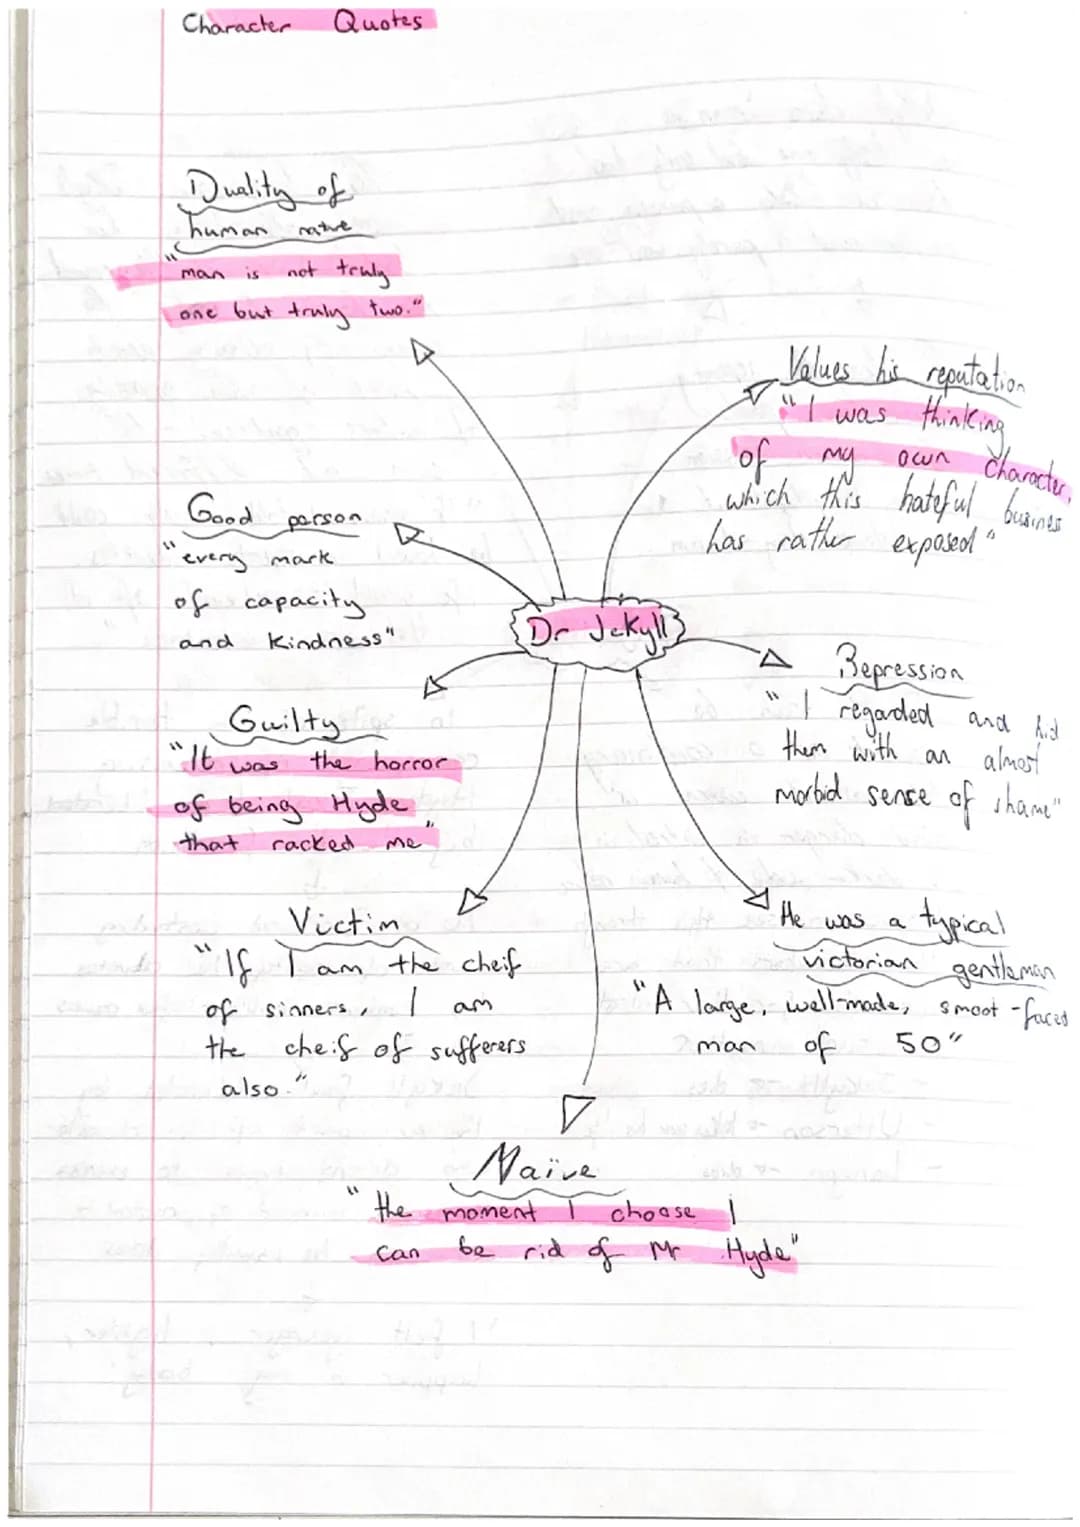 Character Quotes
Duality of
human nature
"man is not truly
one but truly two."
Values his reputation
"I was thinking
of my own character,
which this hateful business
has rather exposed"
Good person
"every mark
of capacity
and kindness"
Dr Jekyll
Repression
"I regarded and hid
them with an almost
morbid sense of shame"
Guilty
"It was the horror
of being Hyde
that racked me"
Victim
"If I am the cheif
of sinners, I am
the cheif of sufferers
also."
He was a typical
victorian gentleman
"A large, well-made, smoot-faced
man of 50"
Naïve
"the moment I choose I
can be rid of Mr Hyde"